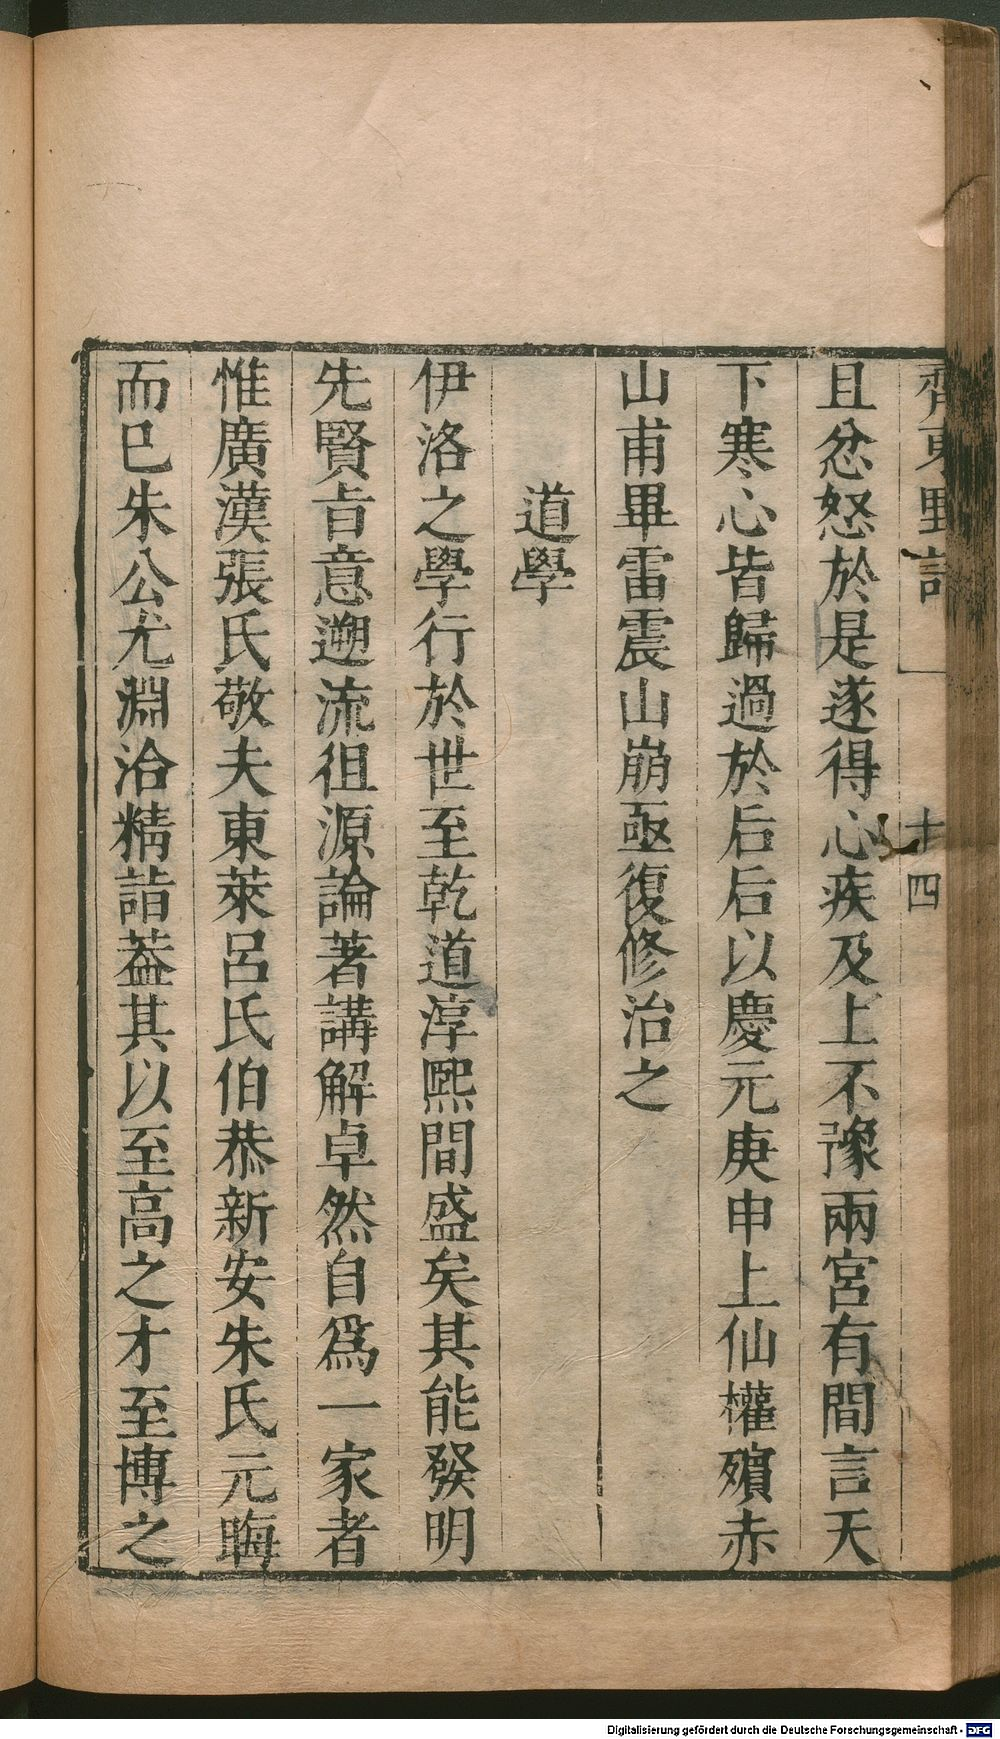 齊東野語
十四
且忿怒於是遂得心疾及上不豫兩宮有間言天
下寒心皆歸過於后后以慶元庚申上仙權殯赤
山甫畢雷震山崩亟復修治之
道學
伊洛之學行於世至乾道淳熙間盛矣其能發明
先賢旨意遡流徂源論著講解卓然自爲一家者
惟廣漢張氏敬夫東萊呂氏伯恭新安朱氏元晦
而巳朱公尤淵洽精詣葢其以至高之才至博之
Digitalisierung gefördert durch die Deutsche Forschungsgemeinschaft - DFG